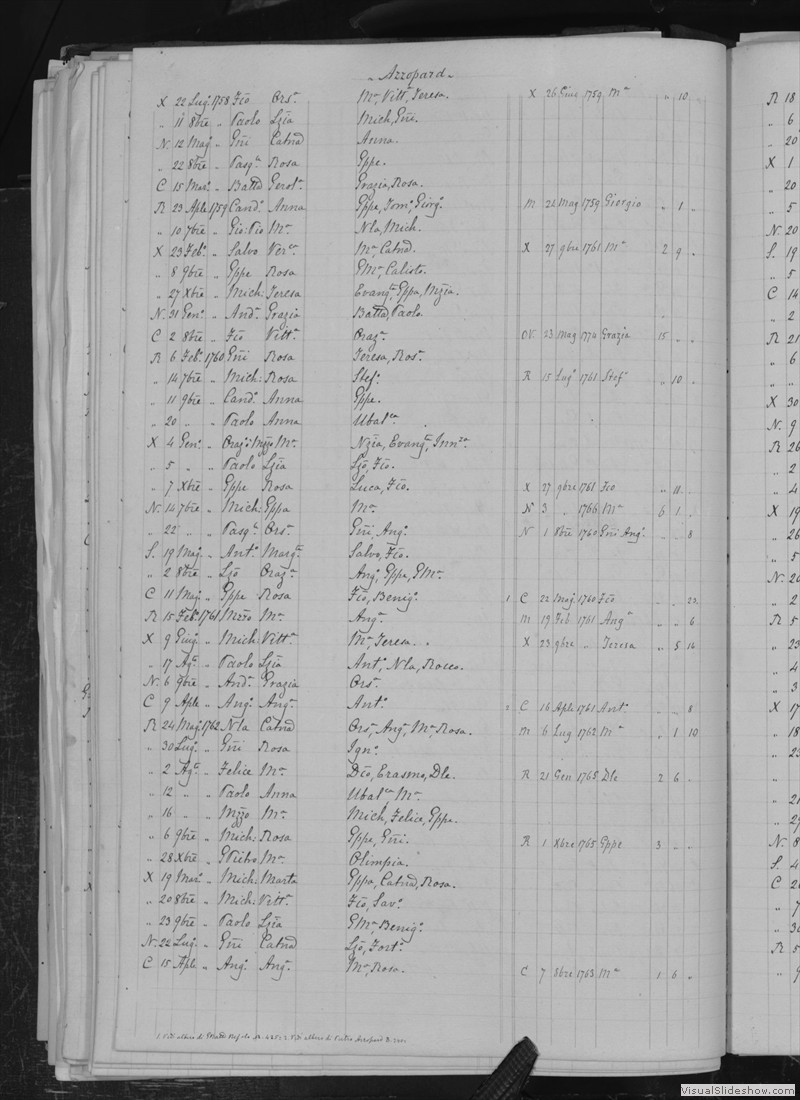 Azzopard
X 22 Lug. 1758 Fco Ors.ª Mª, Vittª, Teresa. X 26 Giug 1759 Mª " 10 "
" 11 8bre " Paolo Ljia Mich, Gni.
N. 12 Mag. " Gni Catnd Anna.
" 22 8bre " Pasq.le Rosa Gppe.
C 15 Mar. " Batta Gerol.ª Grazia, Rosa.
R 23 Aple 1759 Cand. Anna Gppe, Tom., Giorg. M 24 Mag 1759 Giorgio " 1 "
" 10 7bre " Gio: Pio Mª Nla, Mich.
X 23 Feb. " Salvo Ver.ca Mª, Catnd. X 27 9bre 1761 Mª 2 9 "
" 8 9bre " Gppe Rosa GMª, Calisto.
" 27 Xbre " Mich: Teresa Evang., Gppa, Mzia.
N. 31 Gen. " And. Grazia Batta, Paolo.
C 2 8bre " Fco Vittª Orazª. OV. 23 Mag 1774 Grazia 15 " "
R 6 Feb. 1760 Gni Rosa Teresa, Ros.ª
" 14 7bre " Mich: Rosa Stef. R 15 Lug. 1761 Stef " 10 "
" 11 9bre " Cand. Anna Gppe.
" 20 " " Paolo Anna Ubal.ca
X 4 Gen. " Oraz. Mzzo Mª Nzia, Evang., Inn.za
" 5 " " Paolo Ljia Ljo, Fco.
" 7 Xbre " Gppe Rosa Luca, Fco. X 27 9bre 1761 Fco " 11 "
N. 14 7bre " Mich: Gppa Mª N 3 " 1766 Mª 6 1 "
" 22 " " Pasq.le Ors.ª Gni, Ang. N 1 8bre 1760 Gni Ang. " " 8
S. 19 Mag. " Ant. Marg.ta Salvo, Fco.
" 2 8bre " Ljo Oraz.ª Ang., Gppe, GMª.
C 11 Mag. " Gppe Rosa Fco, Benig. 1 C 22 Mag. 1760 Fco " " 22
R 15 Feb. 1761 Mzzo Mª Ang.ª M 19 Feb 1761 Ang.ª " " 6
X 9 Giug. " Mich: Vittª Mª, Teresa. X 23 9bre " Teresa " 5 14
" 17 Ag. " Paolo Ljia Ant., Nla, Rocco.
N. 6 9bre " And. Grazia Ors.ª
C 9 Aple " Ang. Ang.ª Ant. 2 C 16 Aple 1761 Ant. " " 8
R 24 Mag. 1762 Nla Catnd Ors., Ang., Mª, Rosa. M 6 Lug 1762 Mª " 1 10
" 30 Lug. " Gni Rosa Ign.
" 2 Ag. " Felice Mª Dco, Erasmo, Dle. R 21 Gen 1765 Dle 2 6 "
" 12 " " Paolo Anna Ubal.ca Mª.
" 16 " " Mzzo Mª Mich, Felice, Gppa.
" 6 9bre " Mich: Rosa Gppe, Gni. R 1 Xbre 1765 Gppe 3 " "
" 28 Xbre " GPietro Mª Olimpia.
X 19 Mar. " Mich: Marta Gppa, Catnd, Rosa.
" 20 8bre " Mich: Vittª Fco, Sav.
" 23 9bre " Paolo Ljia GMª, Benig.
N. 22 Lug. " Gni Catnd Ljo, Fort.
C 15 Aple " Ang. Ang.ª Mª, Rosa. C 7 8bre 1763 Mª 1 6 "
R 18
" 6
" 20
X 1
" 20
" 5
N. 20
S. 19
" 5
C 14
" 2
R 21
" 6
X 30
N. 9
R 26
" 2
" 4
X 19
" 26
" 5
N. 20
" 2
R 5
" 23
" 4
" 3
X 17
" 18
" 23
" 21
" 29
N. 8
S. 4
C 26
" 7
" 30
R 5
" 9
VisualSlideshow.com